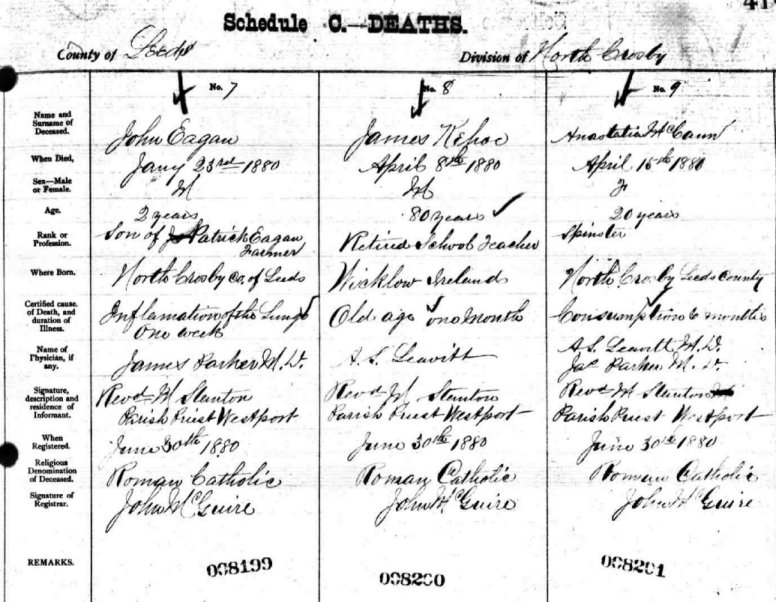 Schedule C.—DEATHS.
County of Leeds
Division of North Crosby
No. 7
No. 8
No. 9
Name and Surname of Deceased.
John Eagan
James Kehoe
Anastatia McCann
When Died,
Jany 23rd 1880
April 8th 1880
April 15th 1880
Sex—Male or Female.
M
M
F
Age.
2 years
80 years
20 years
Rank or Profession.
Son of Patrick Eagan Farmer
Retired School Teacher
Spinster
Where Born.
North Crosby Co. of Leeds
Wicklow Ireland
North Crosby Leeds County
Certified cause of Death, and duration of Illness.
Inflamation of the Lungs One week
Old age one month
Consumption 6 months
Name of Physician, if any.
James Parker M.D.
A. S. Leavitt
A S. Leavitt M.D.
Jas Parker M.D.
Signature, description and residence of Informant.
Revd M Stanton
Parish Priest Westport
Revd M Stanton
Parish Priest Westport
Revd M Stanton
Parish Priest Westport
When Registered.
June 30th 1880
June 30th 1880
June 30th 1880
Religious Denomination of Deceased.
Roman Catholic
Roman Catholic
Roman Catholic
Signature of Registrar.
John McGuire
John McGuire
John McGuire
REMARKS.
008199
008200
008201